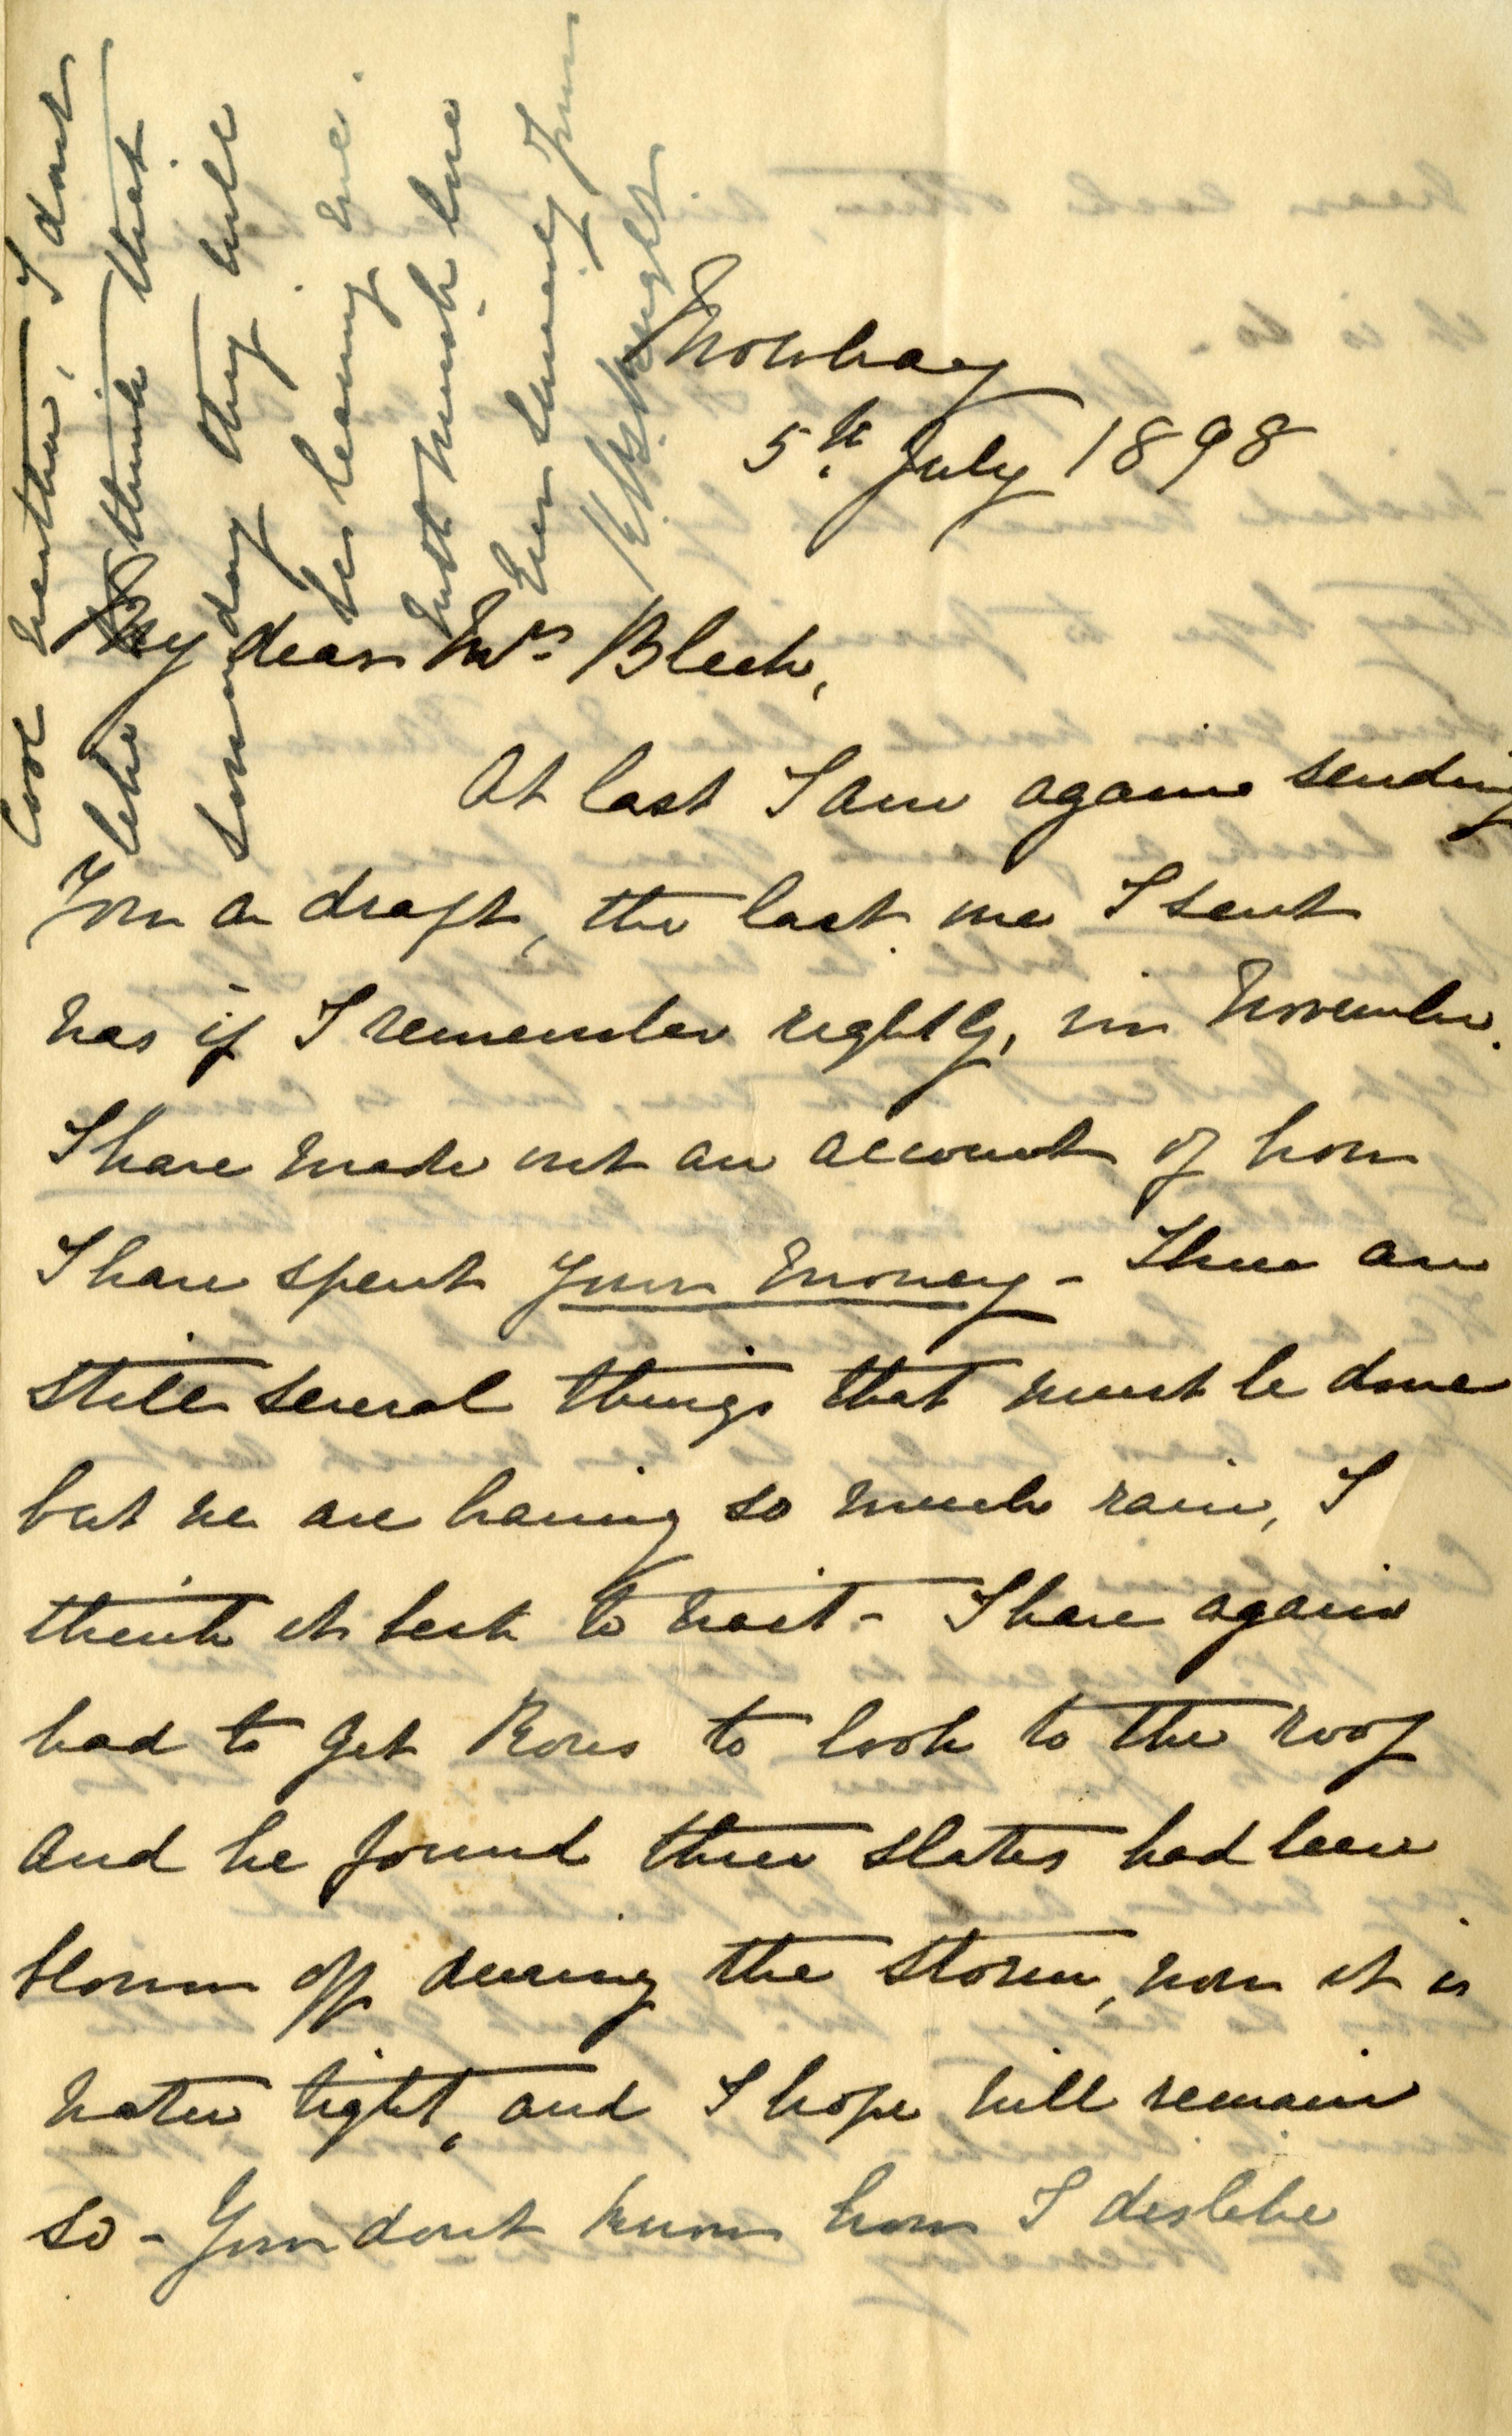 Mowbray
5th July 1898
My dear Mrs Bleek,
At last I am again sending
you a draft, the last one I sent
was if I remember rightly, in November.
I have made out an account of how
I have spent your money - There are
still several things that must be done
but we are having so much rain, I
think it best to wait - I have again
had to get Rores to look to the roof
and he found three slates had been
blown off during the storm, now it is
water tight, and I hope will remain
so - You dont know how I dislike
cool weather, I dont
like to think that
some day they will
be leaving me.
With much love
Ever sincerely yours